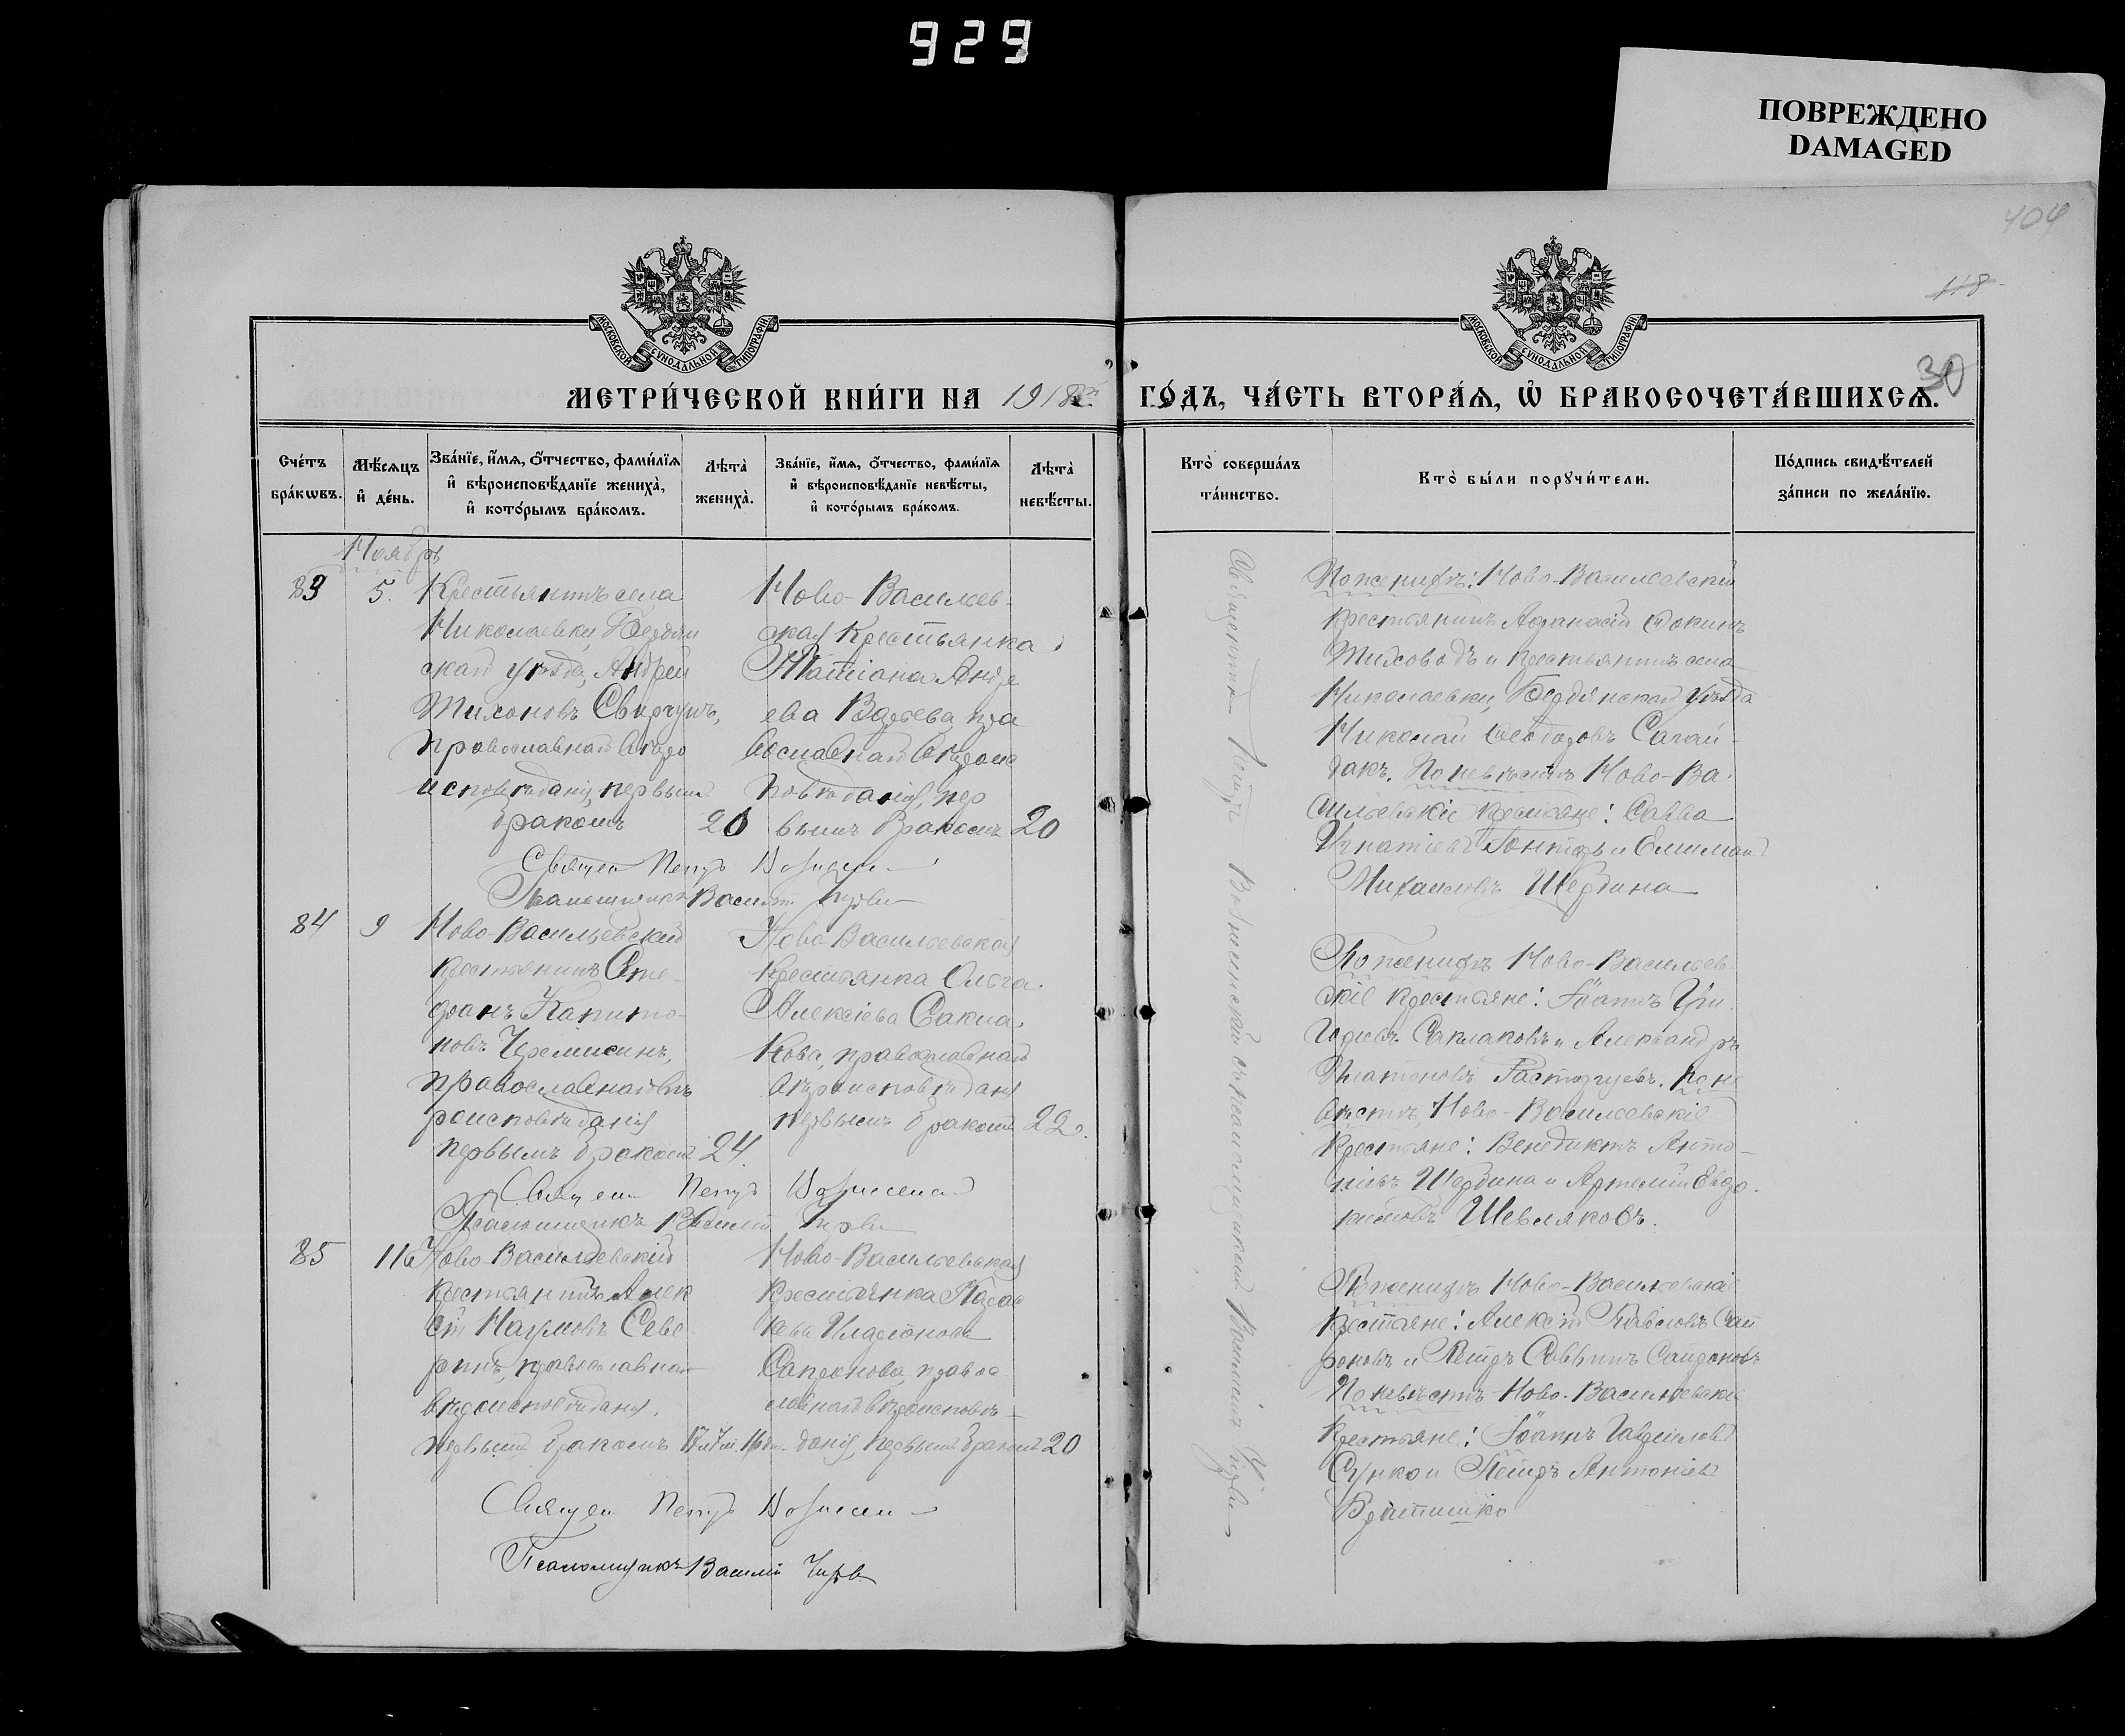 929
ПОВРЕЖДЕНО
DAMAGED
404
118
30
МОСКОВСКОЙ СѴНОДАЛЬНОЙ ТИПОГРАФІИ
МОСКОВСКОЙ СѴНОДАЛЬНОЙ ТИПОГРАФІИ
МЕТРИ́ЧЕСКОЙ КНИ́ГИ НА 1918
ГО́ДЪ, ЧА́СТЬ ВТОРА́Ѧ, Ѡ҆ БРАКОСОЧЕТА́ВШИХСѦ.
Сче́тъ бра́кѡвъ.
Мѣ́сѧцъ и҆ де́нь.
Зва́нїе, и҆́мѧ, ѻ҆́тчество, фами́лїѧ
и҆ вѣроисповѣ́данїе жениха̀,
и҆ кото́рымъ бра́комъ.
Лѣта̀ жениха̀.
Зва́нїе, и҆́мѧ, ѻ҆́тчество, фами́лїѧ
и҆ вѣроисповѣ́данїе невѣ́сты,
и҆ кото́рымъ бра́комъ.
Лѣта̀ невѣ́сты.
Кто̀ соверша́лъ та́инство.
Кто̀ бы́ли порꙋчи́тели.
По́дпись свидѣ́телей за́писи по жела́нїю.
Ноябрь
83 5.
Крестьянинъ села
Николаевки, Бердян
скаго уѣзда, Андрей
Тихоновъ Свиргунъ,
православнаго вѣро
исповѣданія, первымъ
бракомъ 20
Ново-Васильев-
ская крестьянка
Татіана Андре
ева Варѣева, пра
вославнаго вѣроис
повѣданія, пер
вымъ бракомъ 20
Священ Петръ
Псаломщикъ Василій
По женихѣ: Ново-Васильевскій
крестьянинъ Афанасій Фокинъ
Тиховодъ и крестьянинъ села
Николаевки, Бердянскаго уѣзда
Николай Феодоровъ Сагай-
дакъ. По невѣстѣ Ново-Ва
сильевскіе крестьяне: Савва
Игнатіевъ и
Михаиловъ Щербина
84 9
Ново-Васильевскій
крестьянинъ Сте-
фанъ Капито-
новъ Черемисинъ,
православнаго вѣ
роисповѣданія
первымъ бракомъ 24
Ново Васильевская
крестьянка Ольга
Алексіева Сакла
кова, православнаго
вѣроисповѣданія
первымъ бракомъ 22.
Священ Петръ
Псаломщикъ Василій
По женихѣ Ново-Васильев-
скіе крестьяне: Іоаннъ Гри
горіевъ Саклаковъ и Александръ
Платоновъ Расторгуевъ. По не
вѣстѣ, Ново-Васильевскіе
крестьяне: Венедиктъ Анто-
ніевъ Щербина и Артемій Евдо
кимовъ Шевляковъ.
85 11
Ново-Васильевскій
крестьянинъ Алек
сій Наумовъ Севе
ринъ, православнаго
вѣроисповѣданія,
первымъ бракомъ
Ново-Васильевская
крестьянка Парас
кева Иларіонова
Сапронова, правос
лавнаго вѣроисповѣ-
данія, первымъ бракомъ 20
Священ Петръ
Псаломщикъ Василій
По женихѣ Ново-Васильевскіе
крестьяне: Алексій Павловъ Сап
роновъ и Петръ Саввинъ Сапроновъ
По невѣстѣ Ново-Васильевскіе
крестьяне: Іоаннъ Гавриловъ
Сунко и Петръ Антоніевъ
Братишко
Священникъ Петръ Вознесенскій съ псаломщикомъ Василіемъ